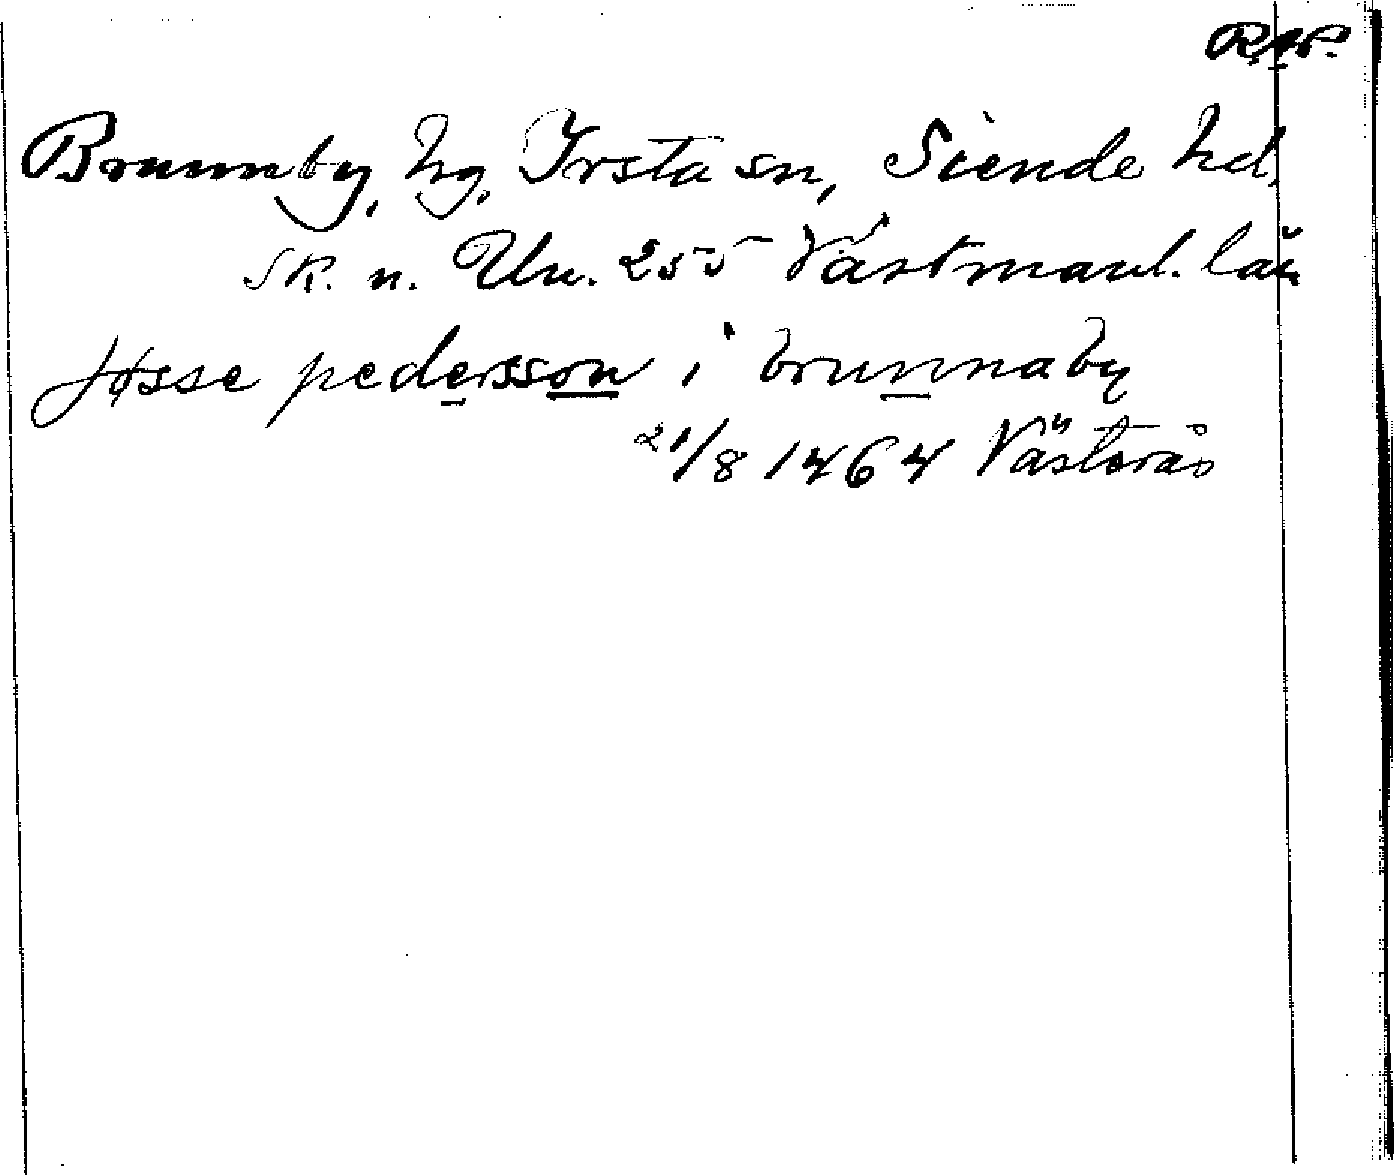 RAP.
Brunnby, hg, Irsta sn, Siende hd,
SK. n. Un. 255 Västmanl. län
Jøsse pedersson i brunnaby
21/8 1464 Västerås